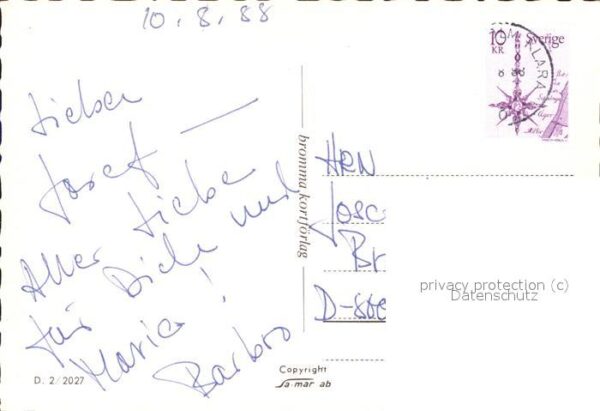 10.8.88
Lieber
Josef —
Alles Liebe
für Dich und
Maria!
Barbro
D. 2/2027
bromma kortförlag
Copyright
sa-mar ab
10 KR
Sverige
KLARA
8 88
HRN
Josc
Br
D-8
privacy protection (c)
Datenschutz